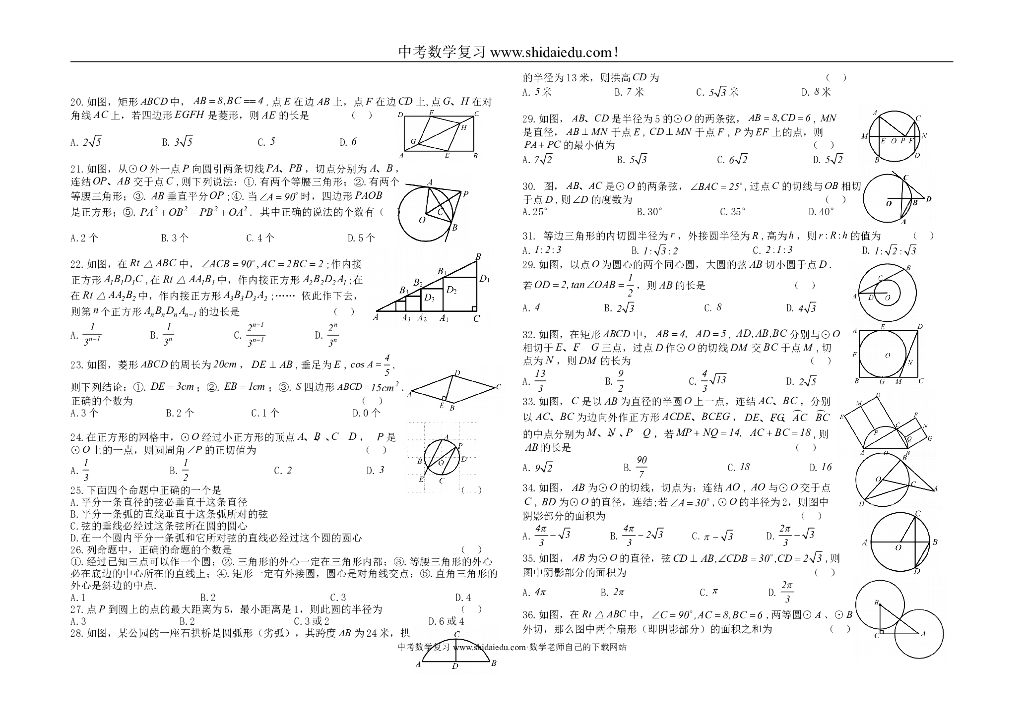 中考数学复习 www.shidaiedu.com!
20.如图，矩形 ABCD 中， AB = 8,BC == 4 ,点 E 在边 AB 上，点 F 在边 CD 上,点 G、H 在对
角线 AC 上，若四边形 EGFH 是菱形，则 AE 的长是 （ ）
A. 2√5 B. 3√5 C. 5 D. 6
21.如图，从⊙O 外一点 P 向圆引两条切线 PA、PB ，切点分别为 A、B ，
连结 OP、AB 交于点 C ,则下列说法：①.有两个等腰三角形；②.有两个
等腰三角形；③. AB 垂直平分 OP ;④.当 ∠A = 90° 时，四边形 PAOB
是正方形；⑤. PA² + OB² PB² + OA² . 其中正确的说法的个数有（
A.2 个 B.3 个 C.4 个 D.5 个
22.如图，在 Rt △ ABC 中， ∠ACB = 90°, AC = 2BC = 2 ;作内接
正方形 A₁B₁D₁C ,在 Rt △ AA₁B₁ 中，作内接正方形 A₂B₂D₂A₁ ;在
在 Rt △ AA₂B₂ 中，作内接正方形 A₃B₃D₃A₂ ;…… 依此作下去,
则第 n 个正方形 AₙBₙDₙAₙ₋₁ 的边长是 （ ）
A. 1/3ⁿ⁻¹ B. 1/3ⁿ C. 2ⁿ⁻¹/3ⁿ⁻¹ D. 2ⁿ/3ⁿ
23.如图，菱形 ABCD 的周长为 20cm ， DE ⊥ AB ,垂足为 E , cos A = 4/5 ,
则下列结论；①. DE = 3cm ；②. EB = 1cm ；③. S 四边形 ABCD = 15cm² .
正确的个数为 （ ）
A.3 个 B.2 个 C.1 个 D.0 个
24.在正方形的网格中，⊙O 经过小正方形的顶点 A、B、C D ， P 是
⊙O 上的一点，则圆周角∠P 的正切值为 （ ）
A. 1/3 B. 1/2 C. 2 D. 3
25.下面四个命题中正确的一个是 （ ）
A.平分一条直径的弦必垂直于这条直径
B.平分一条弧的直线垂直于这条弧所对的弦
C.弦的垂线必经过这条弦所在圆的圆心
D.在一个圆内平分一条弧和它所对弦的直线必经过这个圆的圆心
26.列命题中，正确的命题的个数是 （ ）
①.经过已知三点可以作一个圆；②.三角形的外心一定在三角形内部；③.等腰三角形的外心
必在底边的中心所在的直线上；④.矩形一定有外接圆，圆心是对角线交点；⑤.直角三角形的
外心是斜边的中点.
A.1 B.2 C.3 D.4
27.点 P 到圆上的点的最大距离为 5，最小距离是 1，则此圆的半径为 （ ）
A.3 B.2 C.3 或 2 D.6 或 4
28.如图，某公园的一座石拱桥是圆弧形（劣弧），其跨度 AB 为 24 米，拱
的半径为 13 米，则拱高 CD 为 （ ）
A. 5 米 B. 7 米 C. 5√3 米 D. 8 米
29.如图， AB、CD 是半径为 5 的⊙O 的两条弦， AB = 8,CD = 6 , MN
是直径， AB ⊥ MN 于点 E , CD ⊥ MN 于点 F , P 为 EF 上的点，则
PA + PC 的最小值为 （ ）
A. 7√2 B. 5√3 C. 6√2 D. 5√2
30. 图， AB、AC 是⊙O 的两条弦， ∠BAC = 25° ,过点 C 的切线与 OB 相切
于点 D ,则∠D 的度数为 （ ）
A.25° B.30° C.35° D.40°
31. 等边三角形的内切圆半径为 r ，外接圆半径为 R ,高为 h ，则 r : R : h 的值为 （ ）
A. 1 : 2 : 3 B. 1 : √3 : 2 C. 2 : 1 : 3 D. 1 : √2 : √3
29.如图，以点 O 为圆心的两个同心圆，大圆的弦 AB 切小圆于点 D .
若 OD = 2, tan ∠OAB = 1/2 ，则 AB 的长是 （ ）
A. 4 B. 2√3 C. 8 D. 4√3
32.如图，在矩形 ABCD 中， AB = 4, AD = 5 , AD, AB,BC 分别与⊙O
相切于 E、F G 三点，过点 D 作⊙O 的切线 DM 交 BC 于点 M ,切
点为 N ，则 DM 的长为 （ ）
A. 13/3 B. 9/2 C. 4/3 √13 D. 2√5
33.如图， C 是以 AB 为直径的半圆 O 上一点，连结 AC、BC ，分别
以 AC、BC 为边向外作正方形 ACDE、BCEG ， DE、FG、AC BC
的中点分别为 M、N、P Q ，若 MP + NQ = 14, AC + BC = 18 , 则
AB 的长是 （ ）
A. 9√2 B. 90/7 C. 18 D. 16
34.如图， AB 为⊙O 的切线，切点为；连结 AO , AO 与⊙O 交于点
C , BD 为⊙O 的直径，连结;若 ∠A = 30° ,⊙O 的半径为 2，则图中
阴影部分的面积为 （ ）
A. 4π/3 − √3 B. 4π/3 − 2√3 C. π − √3 D. 2π/3 − √3
35.如图， AB 为⊙O 的直径，弦 CD ⊥ AB, ∠CDB = 30°, CD = 2√3 , 则
图中阴影部分的面积为 （ ）
A. 4π B. 2π C. π D. 2π/3
36.如图，在 Rt △ ABC 中， ∠C = 90°, AC = 8, BC = 6 ,两等圆⊙ A 、⊙ B
外切，那么图中两个扇形（即阴影部分）的面积之和为 （ ）
中考数学复习 www.shidaiedu.com 数学老师自己的下载网站